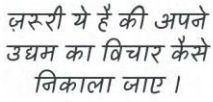 ज़रूरी ये है की अपने
उद्यम का विचार कैसे
निकाला जाए ।